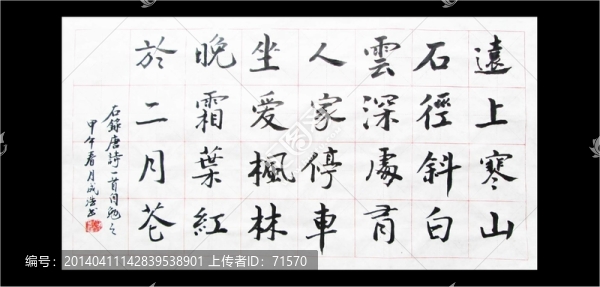 遠上寒山
石徑斜白
雲深處有
人家停車
坐愛楓林
晚霜葉紅
於二月花
右錄唐詩一首同勉之
甲午春月成浩书
编号：20140411142839538901 上传者ID：71570